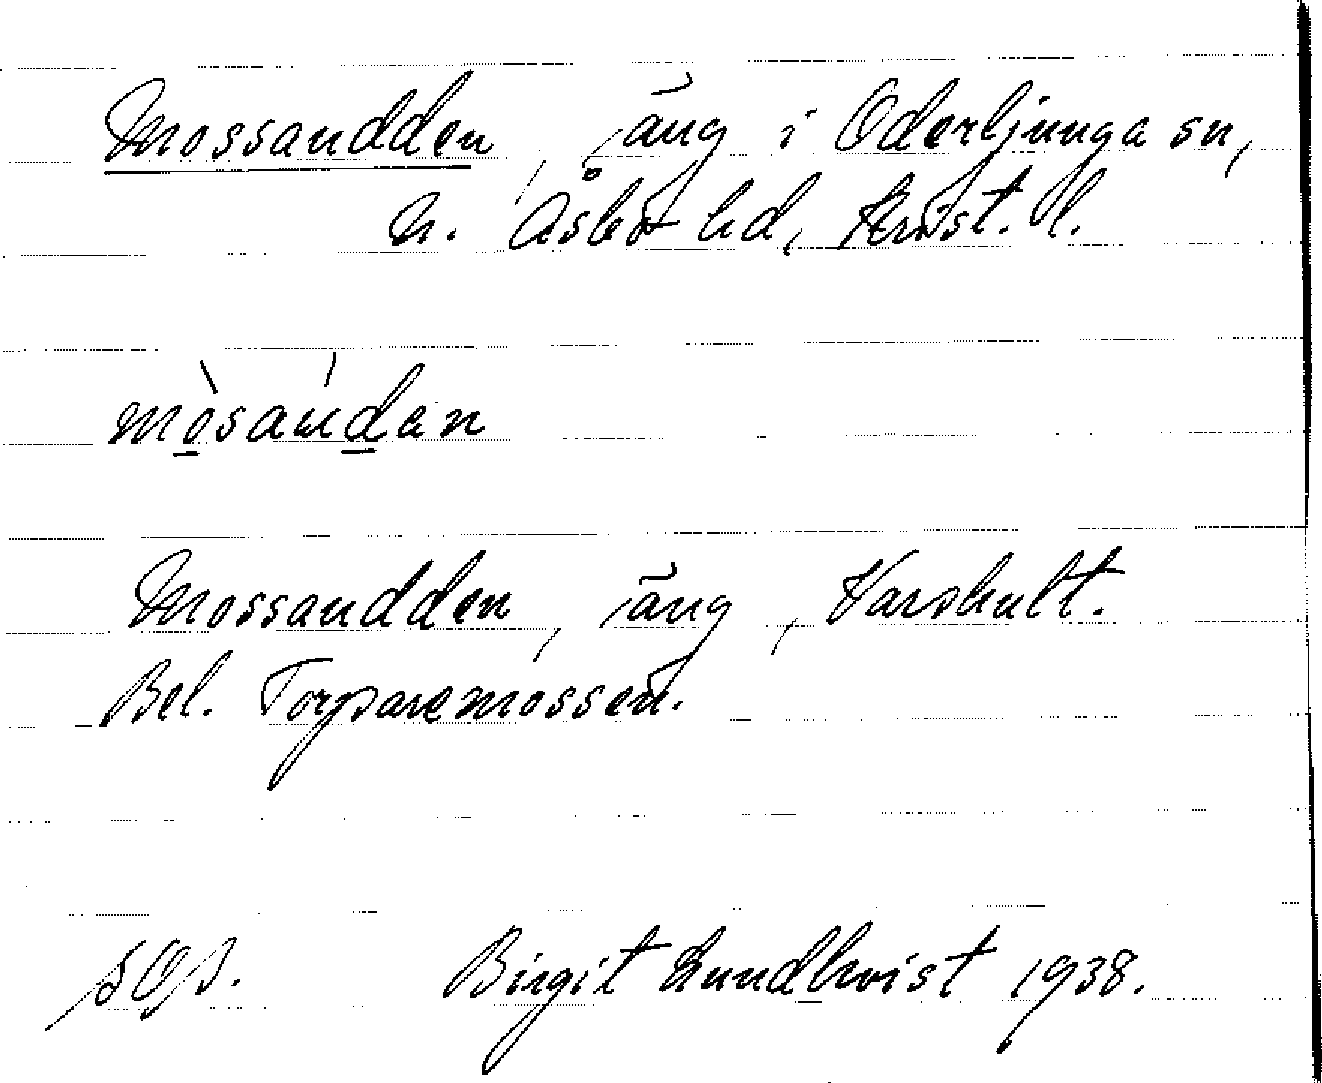 Mossaudden, äng i Oderljunga sn,
N. Åsbo hd, Krist. l.
mòsaúdan
Mossaudden, äng, Varshult.
Bel. Torparemossen.
Birgit Lundkvist 1938.